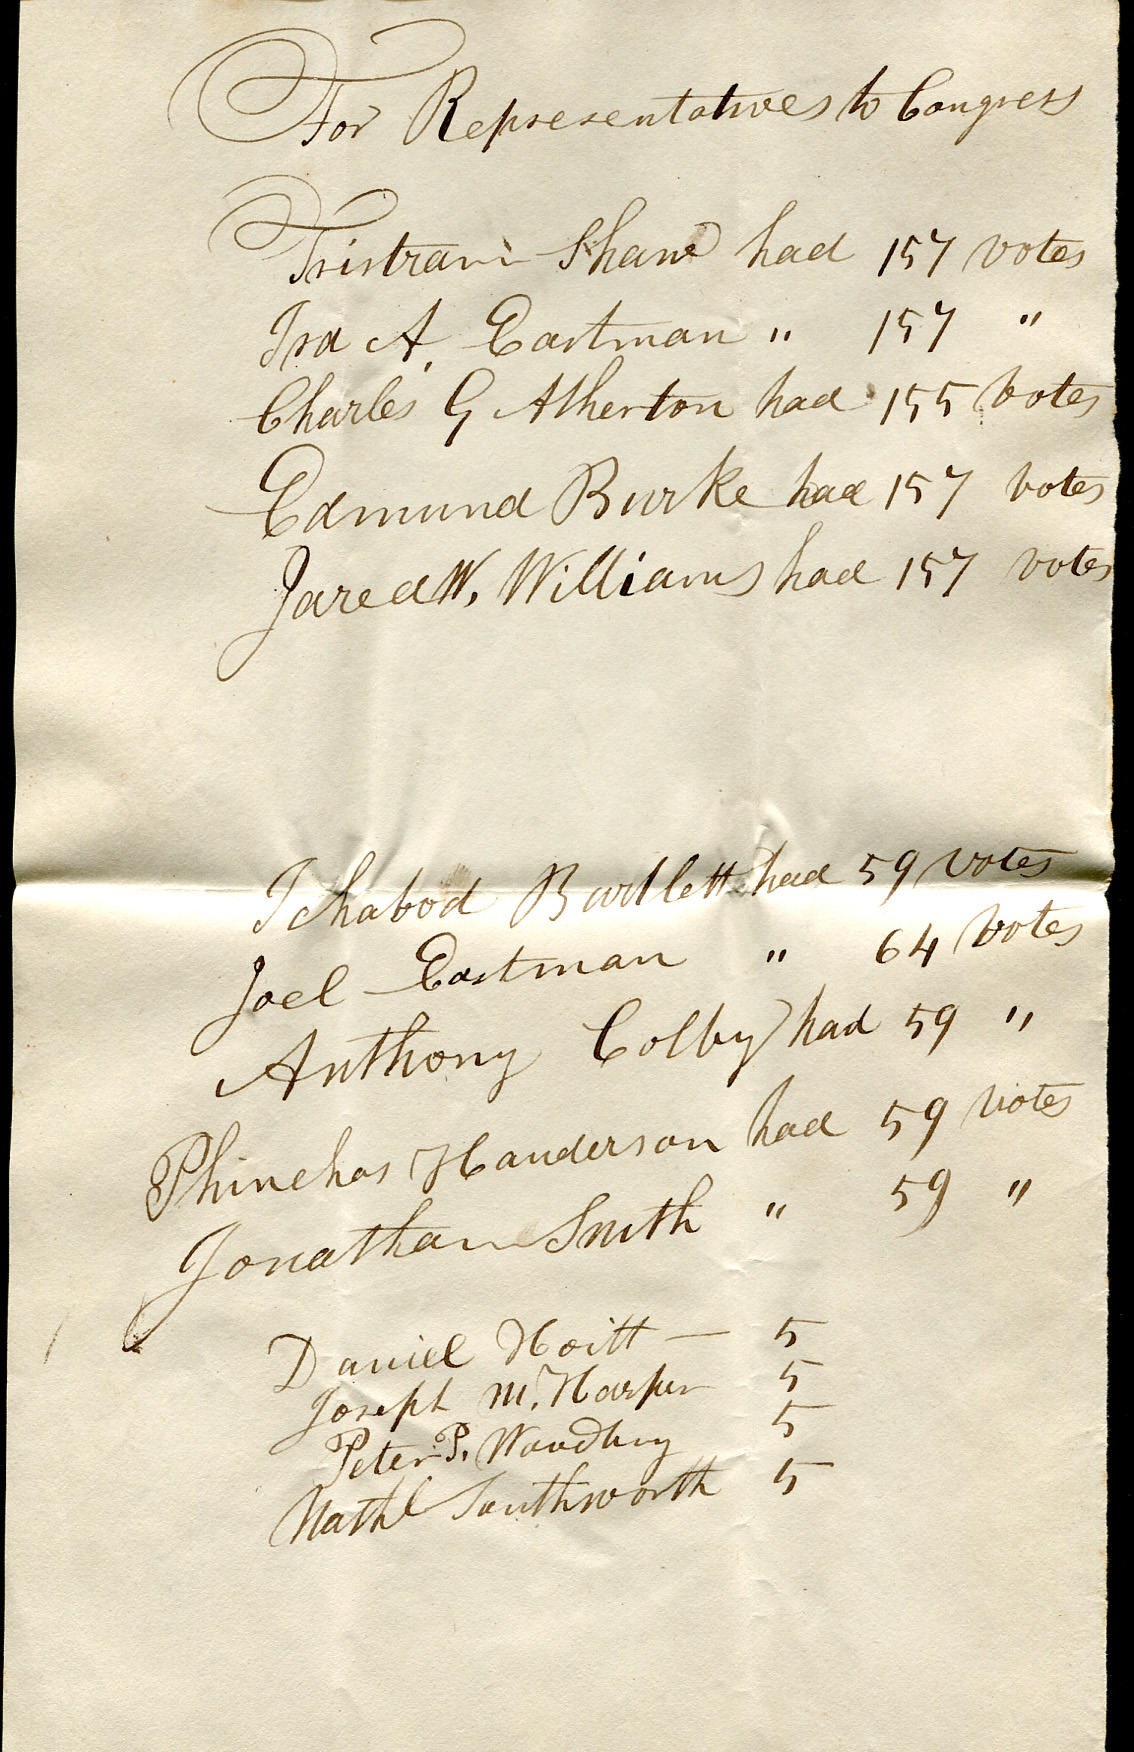 For Representatives to Congress
Tristram Shaw had 157 votes
Ira A. Eastman " 157 "
Charles G Atherton had 155 votes
Edmund Burke had 157 votes
Jared W. Williams had 157 votes
Ichabod Bartlett had 59 votes
Joel Eastman " 64 votes
Anthony Colby had 59 "
Phinehas Handerson had 59 votes
Jonathan Smith " 59 "
Daniel Hoitt — 5
Joseph M. Harper 5
Peter P. Woodbury 5
Nathl Southworth 5